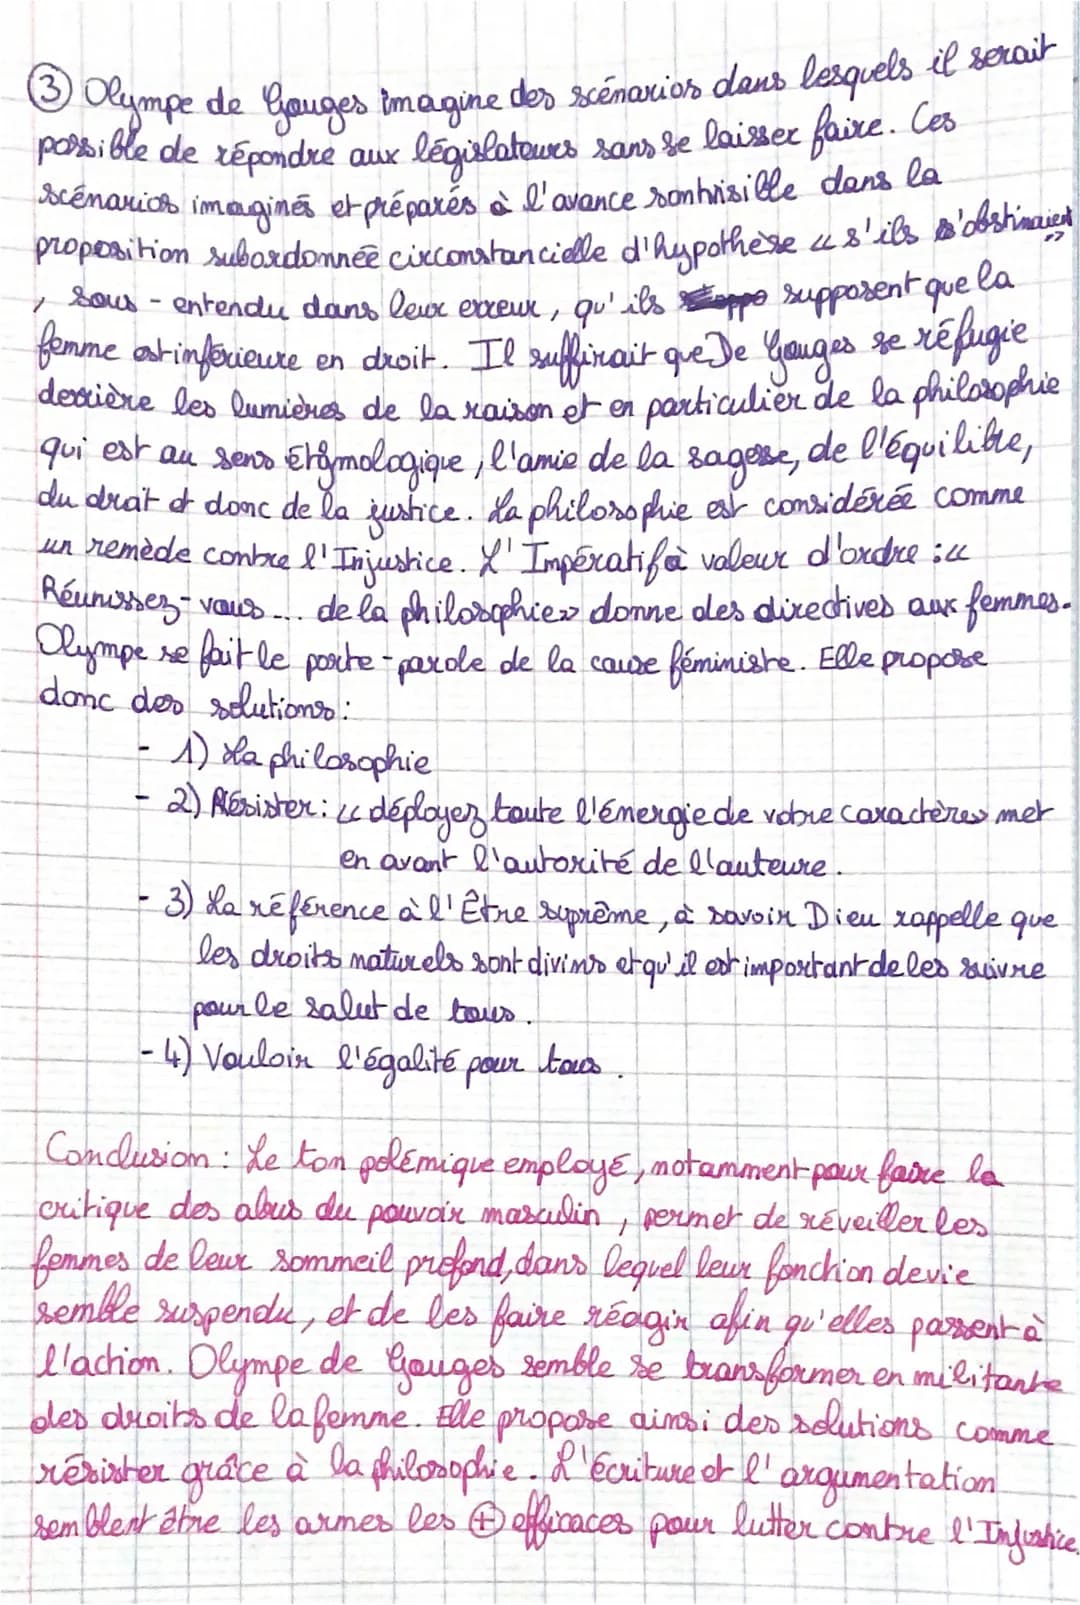 ③ Olympe de Gouges imagine des scénarios dans lesquels il serait
possible de répondre aux législateurs sans se laisser faire. Ces
scénarios imaginés et préparés à l'avance sont visible dans la
proposition subordonnée circonstancielle d'hypothèse « s'ils s'obstinaient »
, sous-entendu dans leur erreur, qu'ils supposent que la
femme est inférieure en droit. Il suffirait que De Gouges se réfugie
derrière les lumières de la raison et en particulier de la philosophie
qui est au sens Étymologique, l'amie de la sagesse, de l'équilibre,
du droit et donc de la justice. La philosophie est considérée comme
un remède contre l'Injustice. L'Impératif à valeur d'ordre : «
Réunissez-vous ... de la philosophie » donne des directives aux femmes.
Olympe se fait le porte-parole de la cause féministe. Elle propose
donc des solutions :
- 1) La philosophie
- 2) Résister : « déployez toute l'énergie de votre caractère » met
en avant l'autorité de l'auteure.
- 3) La référence à l'Être suprême, à savoir Dieu rappelle que
les droits naturels sont divins et qu'il est important de les suivre
pour le salut de tous.
- 4) Vouloir l'égalité pour tous.
Conclusion : Le ton polémique employé, notamment pour faire la
critique des abus du pouvoir masculin, permet de réveiller les
femmes de leur sommeil profond, dans lequel leur fonction de vie
semble suspendu, et de les faire réagir afin qu'elles passent à
l'action. Olympe de Gouges semble se transformer en militante
des droits de la femme. Elle propose ainsi des solutions comme
résister grâce à la philosophie. L'écriture et l'argumentation
semblent être les armes les ⊕ efficaces pour lutter contre l'Injustice.